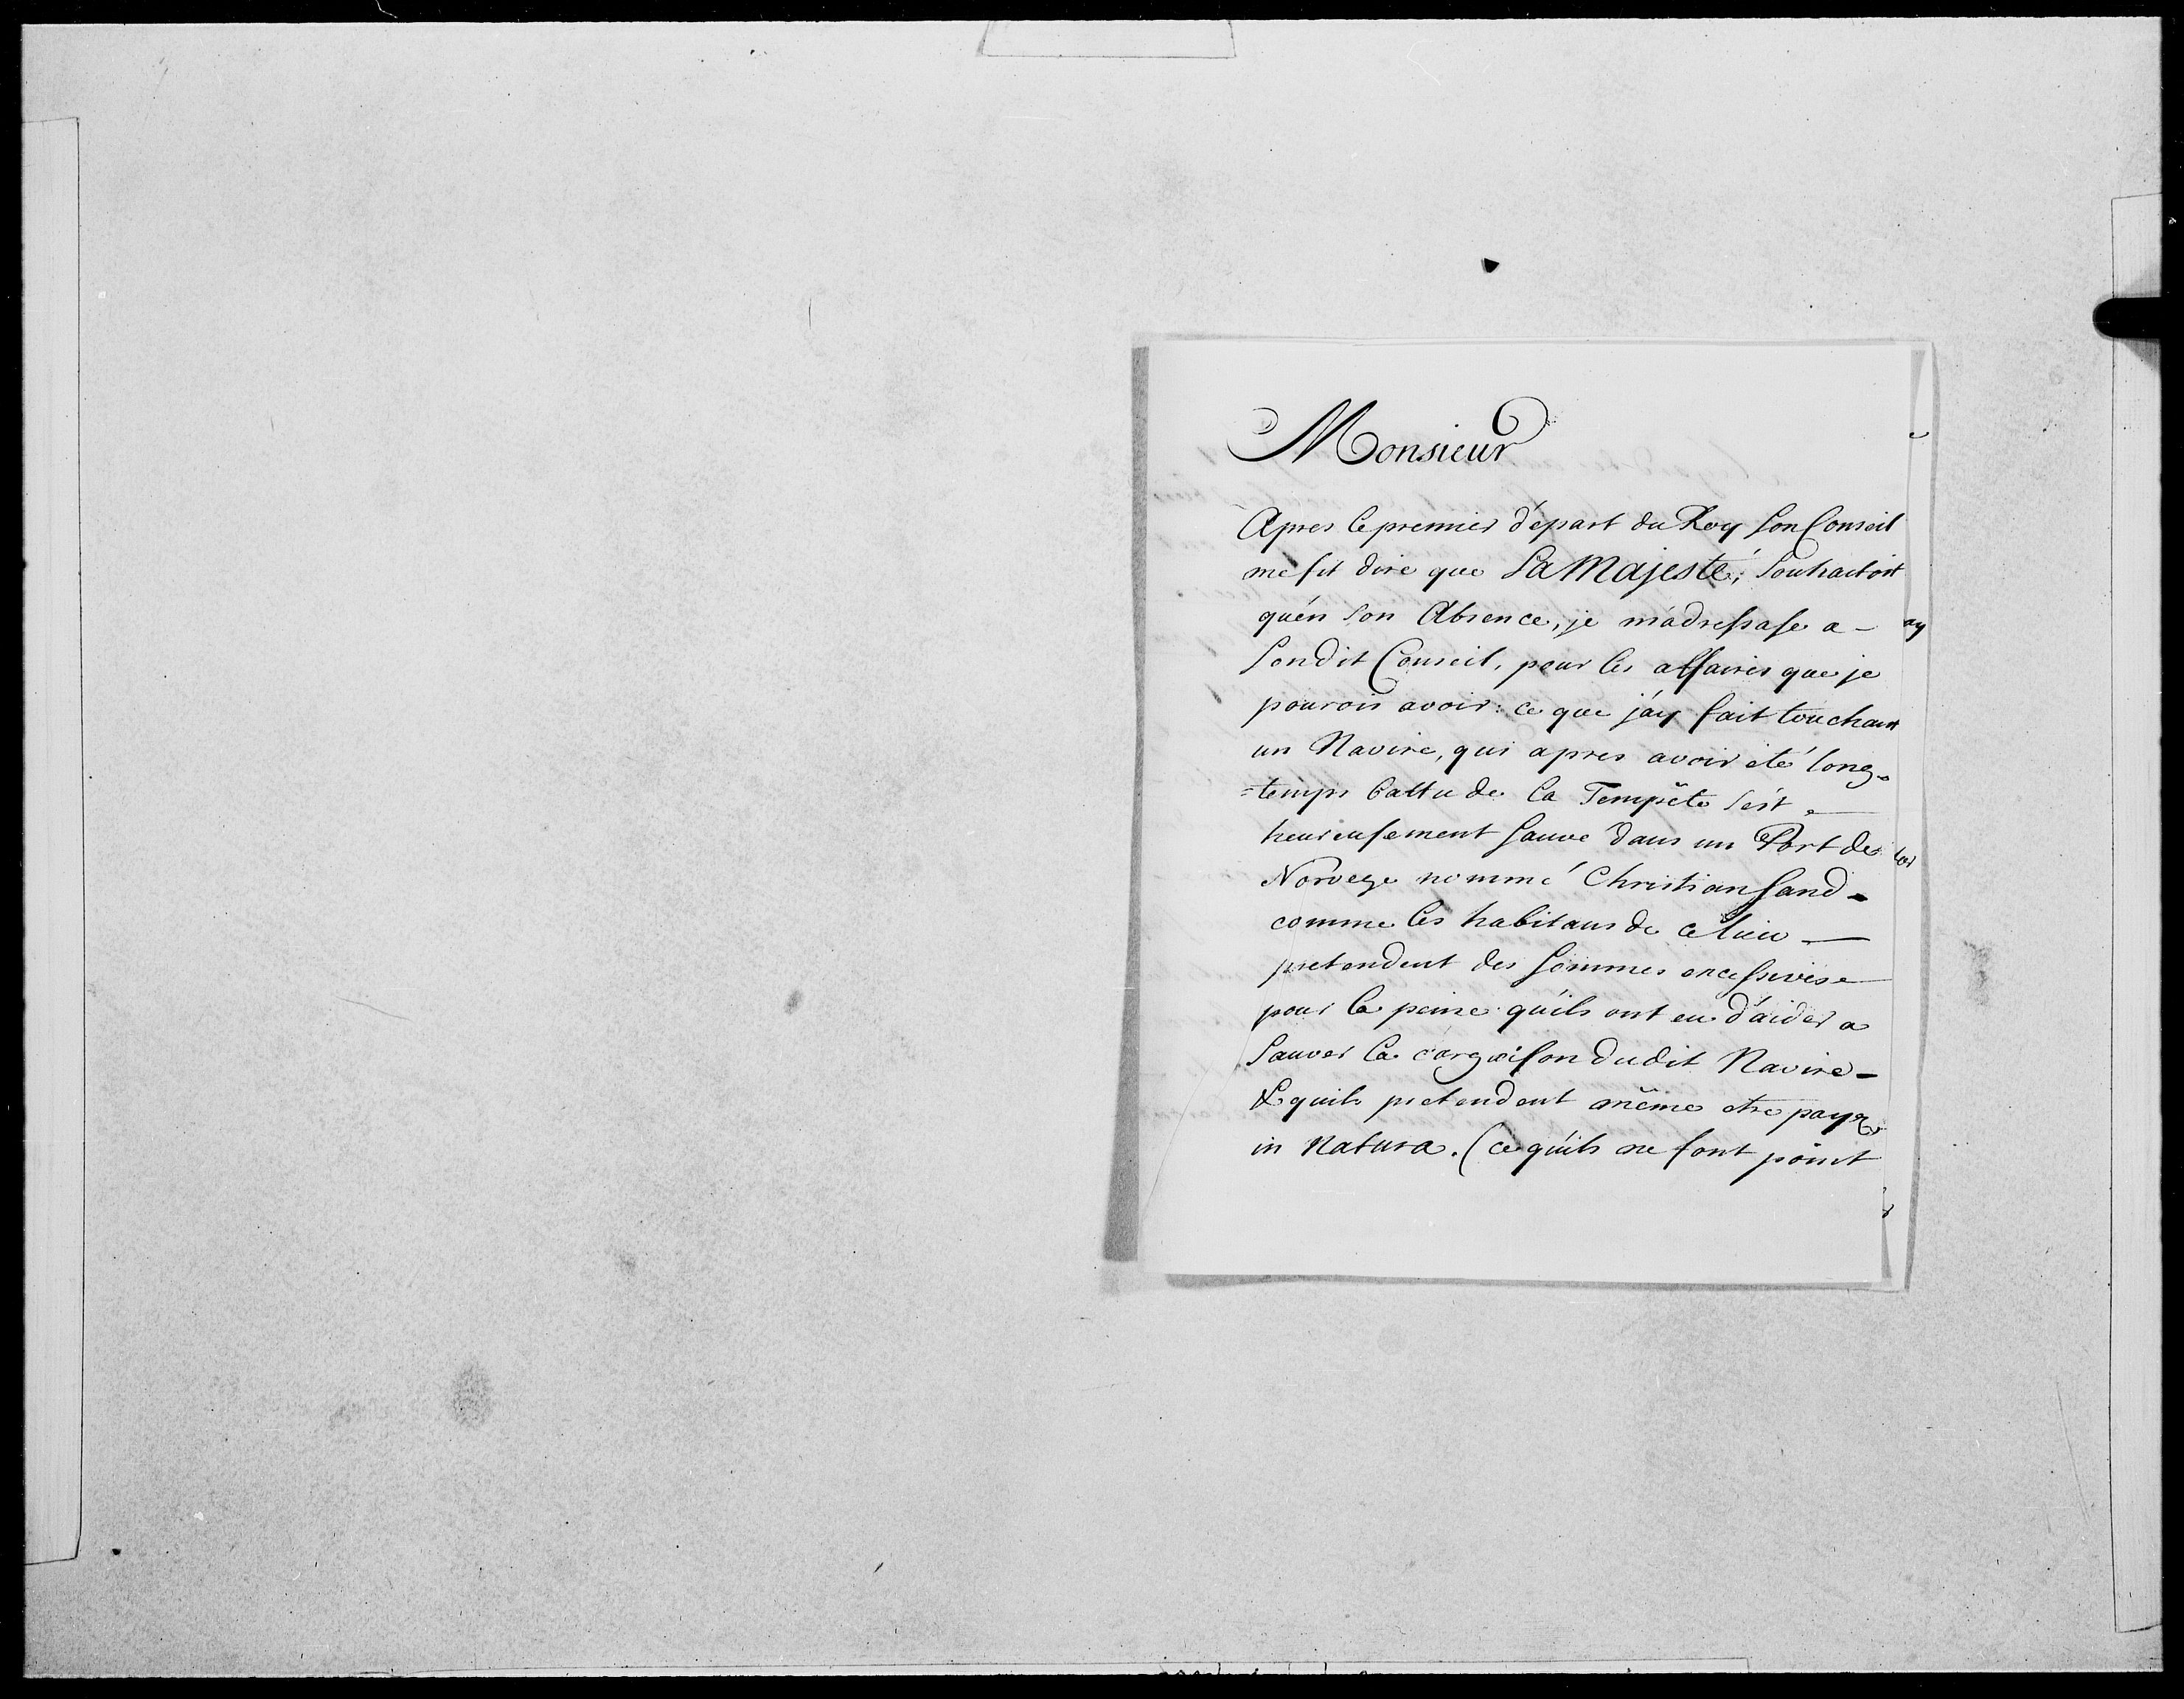 Monsieur
Apres le premier d'épart du Roy son Conseil
me fit dire que Sa Majesté, souhaitoit
qu'en son Absence, je m'adressasse a -
sondit Conseil, pour les affaires que je
pourois avoir: ce que j'ay fait touchant
un Navire, qui apres avoir eté long-
=temps battu de la Tempête s'est
heureusement sauvé dans un Port de
Norvege nommé Christiansand -
comme les habitans de ce lieu -
pretendent des sommes excessives
pour la peine qu'ils ont eu d'aider a
sauver la cargaison dudit Navire -
& quils pretendent même etre payez
in Natura. (ce qu'ils ne font point